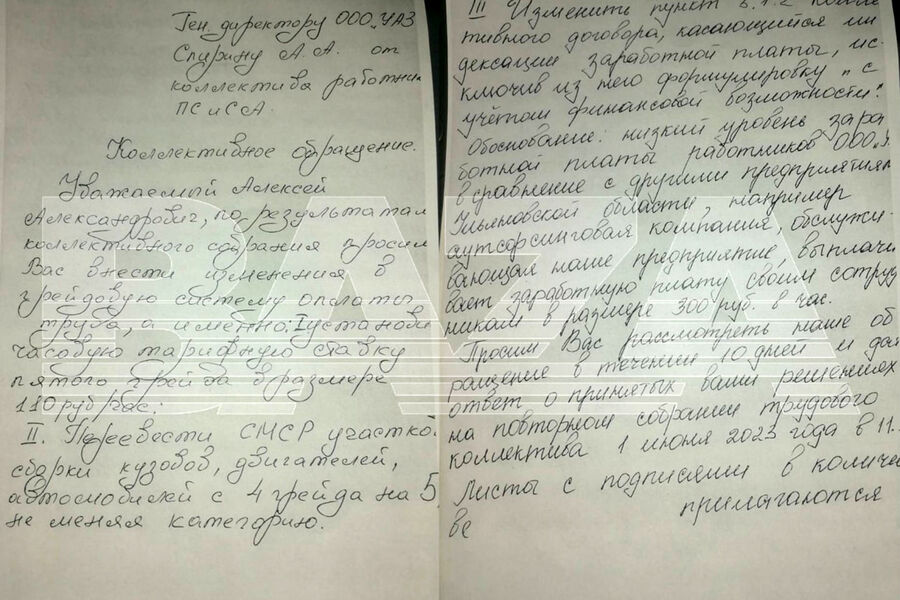 Ген. директору ООО „УАЗ
Спирину А. А. от
коллектива работни
ПС и СА.
Коллективное обращение.
Уважаемый Алексей
Александрович, по результатам
коллективного собрания просим
Вас внести изменения в
грейдовую систему оплаты
труда, а именно: I установи
часовую тарифную ставку
пятого грейда в размере
110 руб/час;
II. Перевести СМСР участко
сборки кузовов, двигателей,
автомобилей с 4 грейда на 5,
не меняя категорию.
III Изменить пункт 8.1.2 колле
тивного договора, касающийся ин
дексации заработной платы, ис
ключив из него формулировку „с
учётом финансовой возможности".
Обоснование: низкий уровень зара
ботной платы работников ООО „У
в сравнение с другими предприятиям
Ульяновской области, например
аутсорсинговая компания, обслужи-
вающая наше предприятие выплачи
вает заработную плату своим сотруд
никам в размере 300 руб. в час.
Просим Вас рассмотреть наше об
ращение в течении 10 дней и дат
ответ о принятых вами решениях
на повторном собрании трудового
коллектива 1 июня 2023 года в 11.
Листы с подписями в количе
ве прилагаются
BAZA